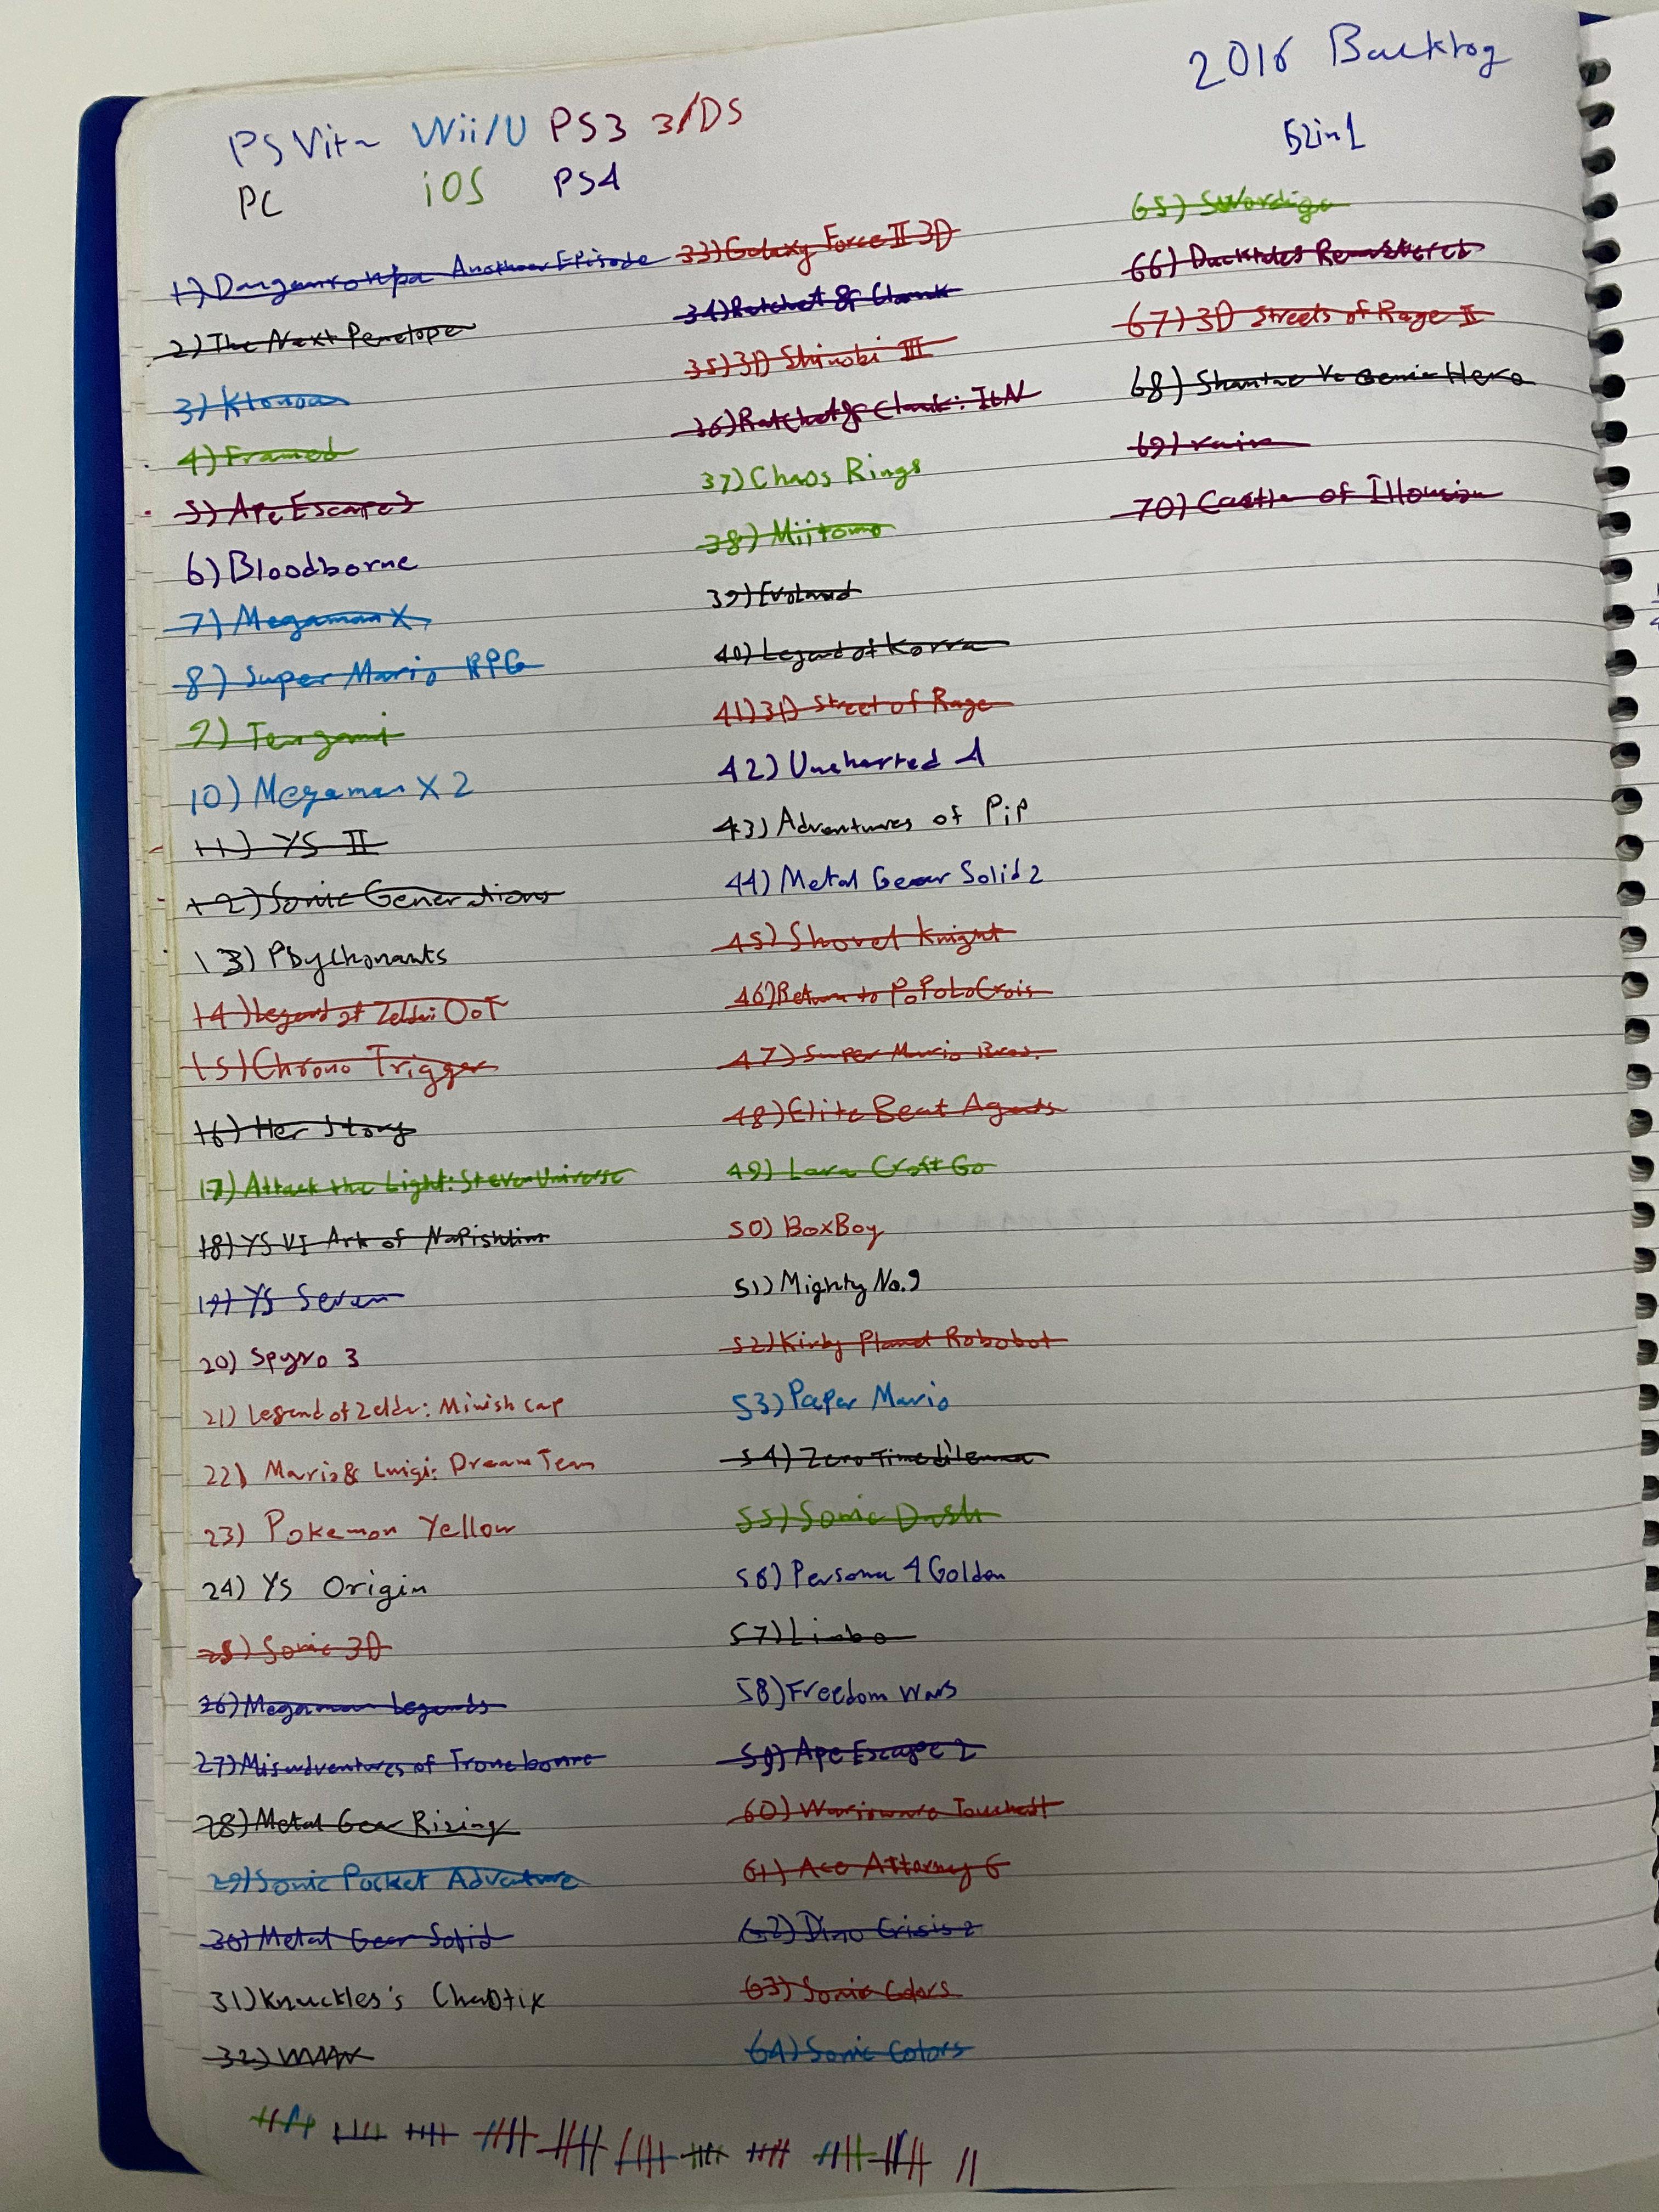 2016 Backlog
52in1
PSVita Wii/U PS3 3/DS
PC iOS PS4
1) Danganronpa Another Episode
2) The Next Penelope
3) Klonoa
4) Framed
5) Ape Escape 3
6) Bloodborne
7) Megaman X
8) Super Mario RPG
9) Tengami
10) Megaman X 2
11) YS II
12) Sonic Generations
13) Psychonauts
14) Legend of Zelda: OoT
15) Chrono Trigger
16) Her Story
17) Attack the Light: Steven Universe
18) YS VI Ark of Napishtim
19) YS Seven
20) Spyro 3
21) Legend of Zelda: Minish Cap
22) Mario & Luigi: Dream Team
23) Pokemon Yellow
24) YS Origin
25) Sonic 3D
26) Megaman Legends
27) Misadventures of Trone bonne
28) Metal Gear Rising
29) Sonic Pocket Adventure
30) Metal Gear Solid
31) Knuckles's Chaotix
32)
33) Galaxy Force II 3D
34) Ratchet & Clank
35) 3D Shinobi III
36) Ratchet & Clank: ItN
37) Chaos Rings
38) Miitomo
39) Evoland
40) Legend of Korra
41) 3D Street of Rage
42) Uncharted 4
43) Adventures of Pip
44) Metal Gear Solid 2
45) Shovel Knight
46) Return to PoPoLoCrois
47) Super Mario Bros.
48) Elite Beat Agents
49) Lara Croft Go
50) BoxBoy
51) Mighty No.9
52) Kirby Planet Robobot
53) Paper Mario
54) Zero Time dilemma
55) Sonic Dash
56) Persona 4 Golden
57) Limbo
58) Freedom Wars
59) Ape Escape 2
60) Warioware Touched!
61) Ace Attorney 6
62) Dino Crisis 2
63) Sonic Colors
64) Sonic Colors
65) Swordigo
66) Ducktales Remastered
67) 3D Streets of Rage II
68) Shantae ½ Genie Hero
69) rain
70) Castle of Illousion